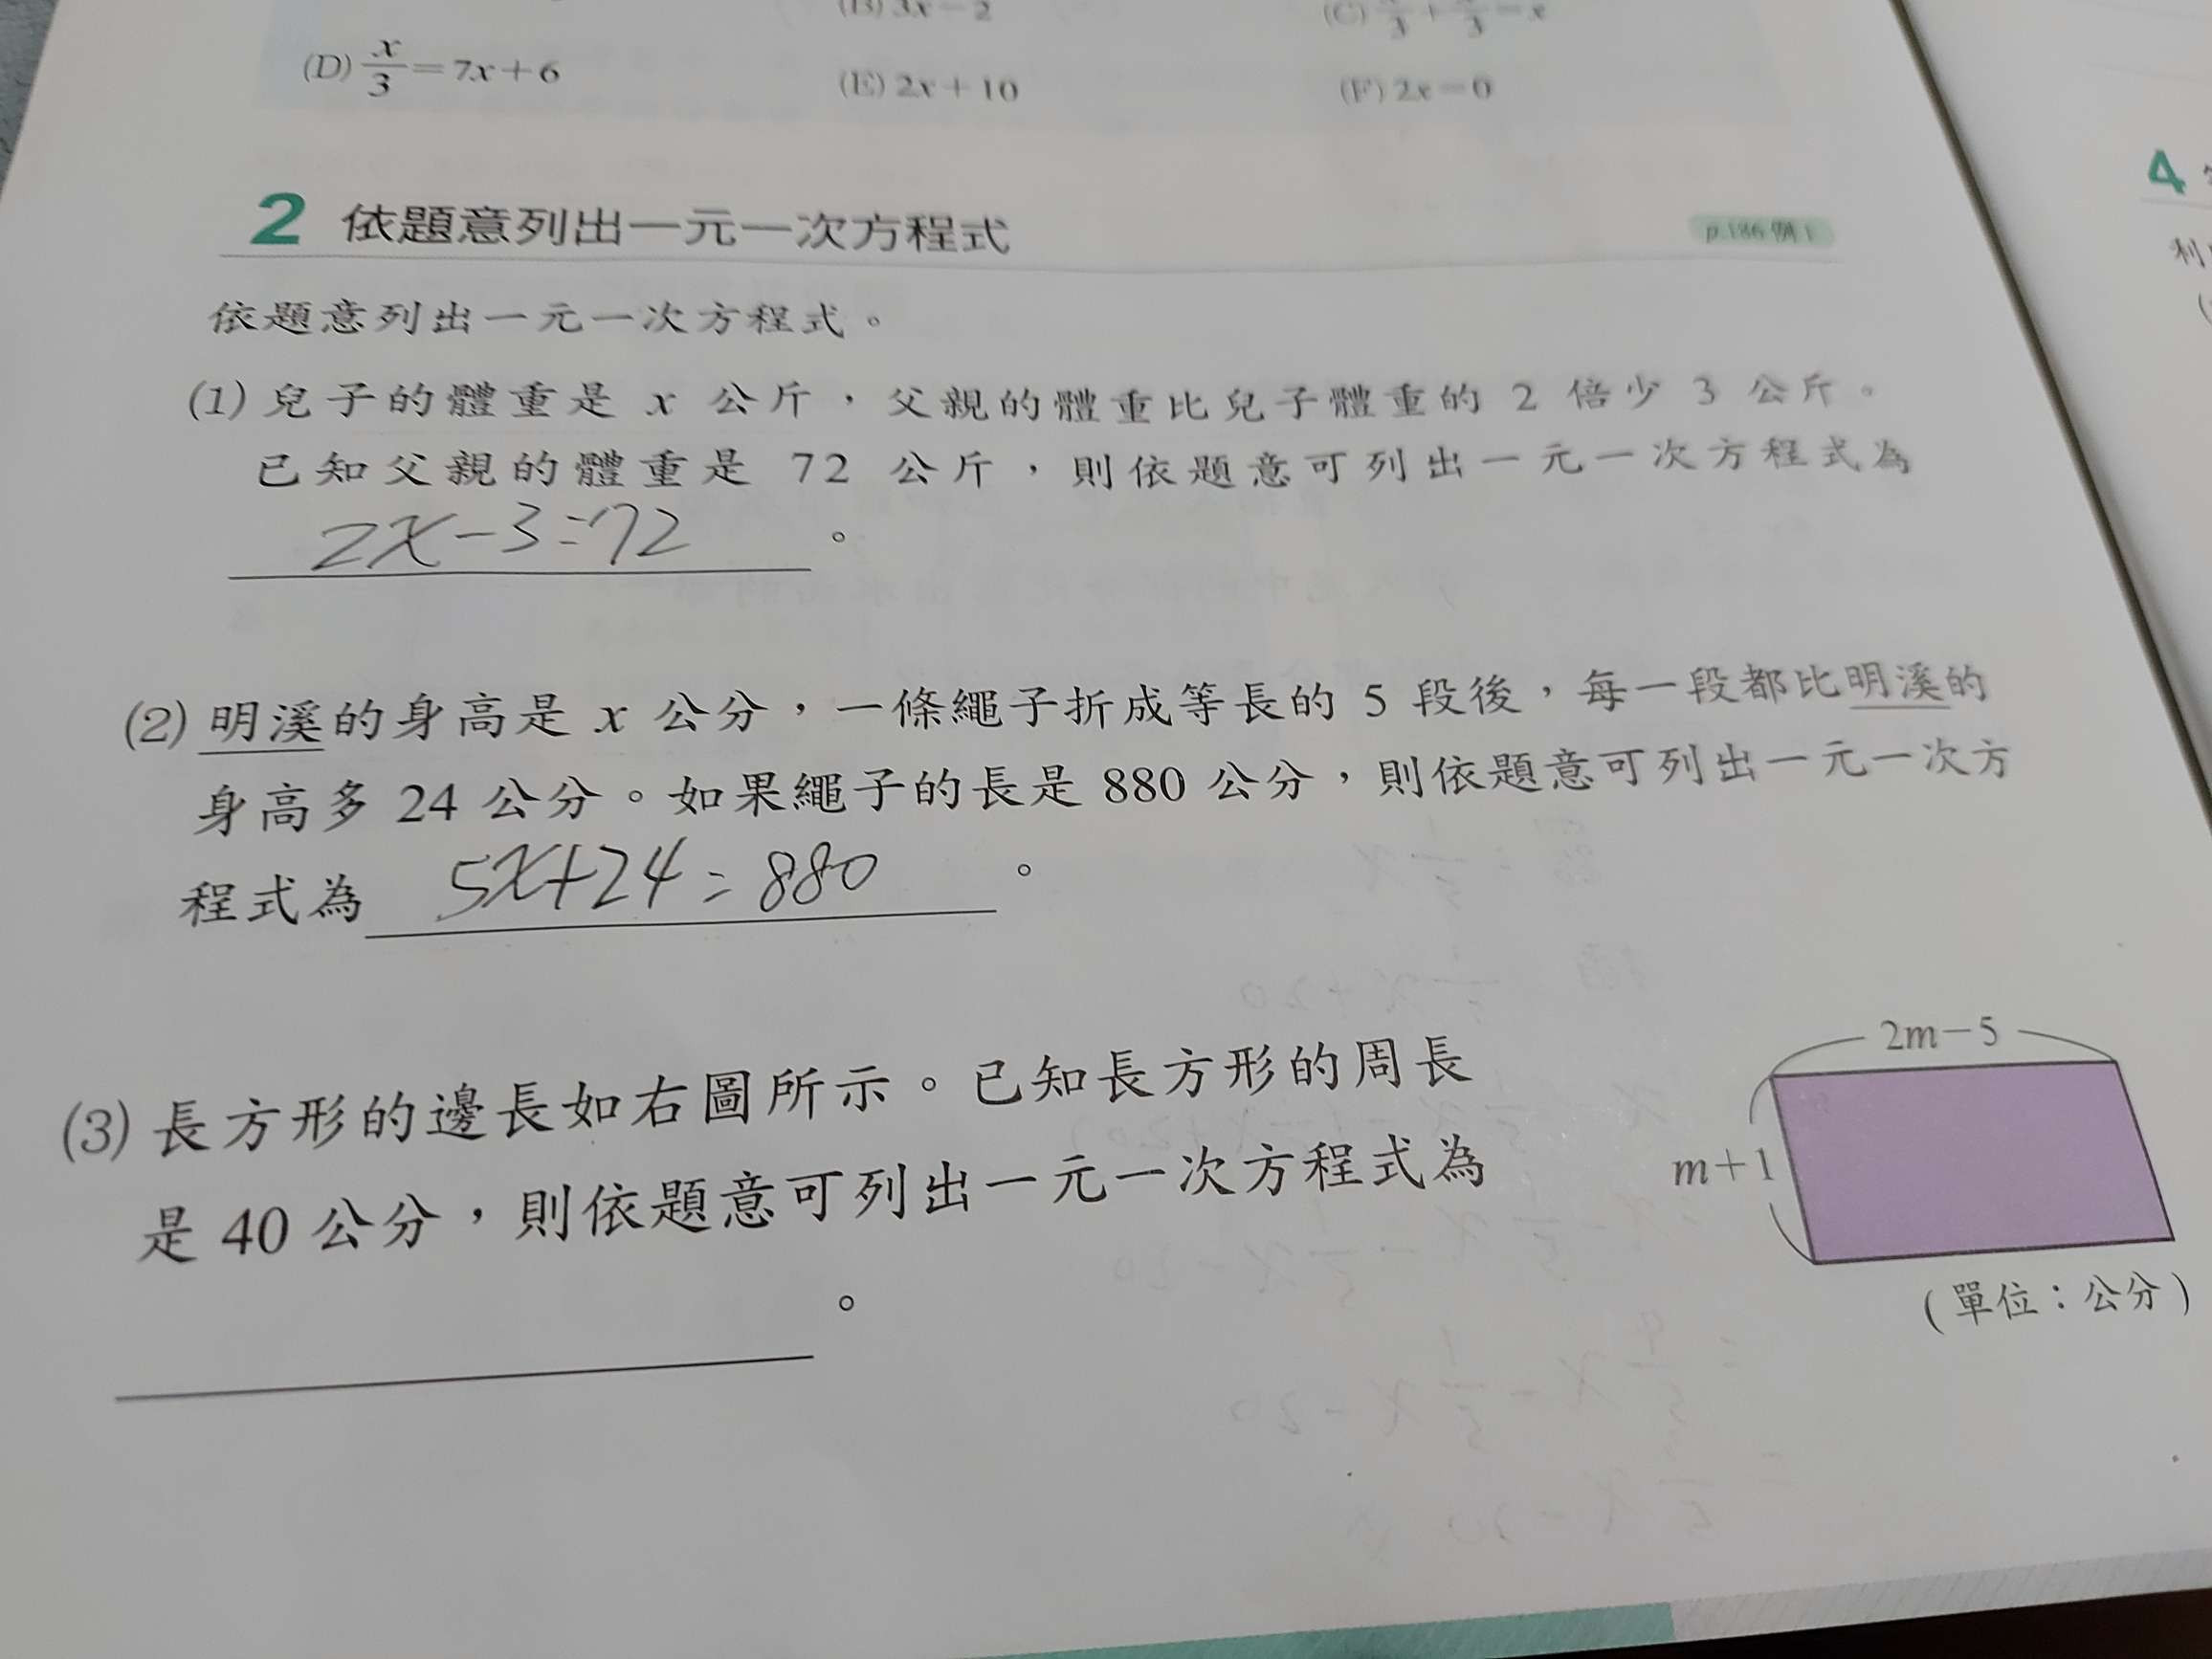 (B) 3x－2
(D) x/3＝7x＋6
(E) 2x＋10
(F) 2x＝0
2 依題意列出一元一次方程式
p.186 例 1
依題意列出一元一次方程式。
(1) 兒子的體重是 x 公斤，父親的體重比兒子體重的 2 倍少 3 公斤。
已知父親的體重是 72 公斤，則依題意可列出一元一次方程式為
2x－3＝72。
(2) 明溪的身高是 x 公分，一條繩子折成等長的 5 段後，每一段都比明溪的
身高多 24 公分。如果繩子的長是 880 公分，則依題意可列出一元一次方
程式為 5x+24＝880。
(3) 長方形的邊長如右圖所示。已知長方形的周長
是 40 公分，則依題意可列出一元一次方程式為
。
2m－5
m＋1
(單位：公分)
4
利